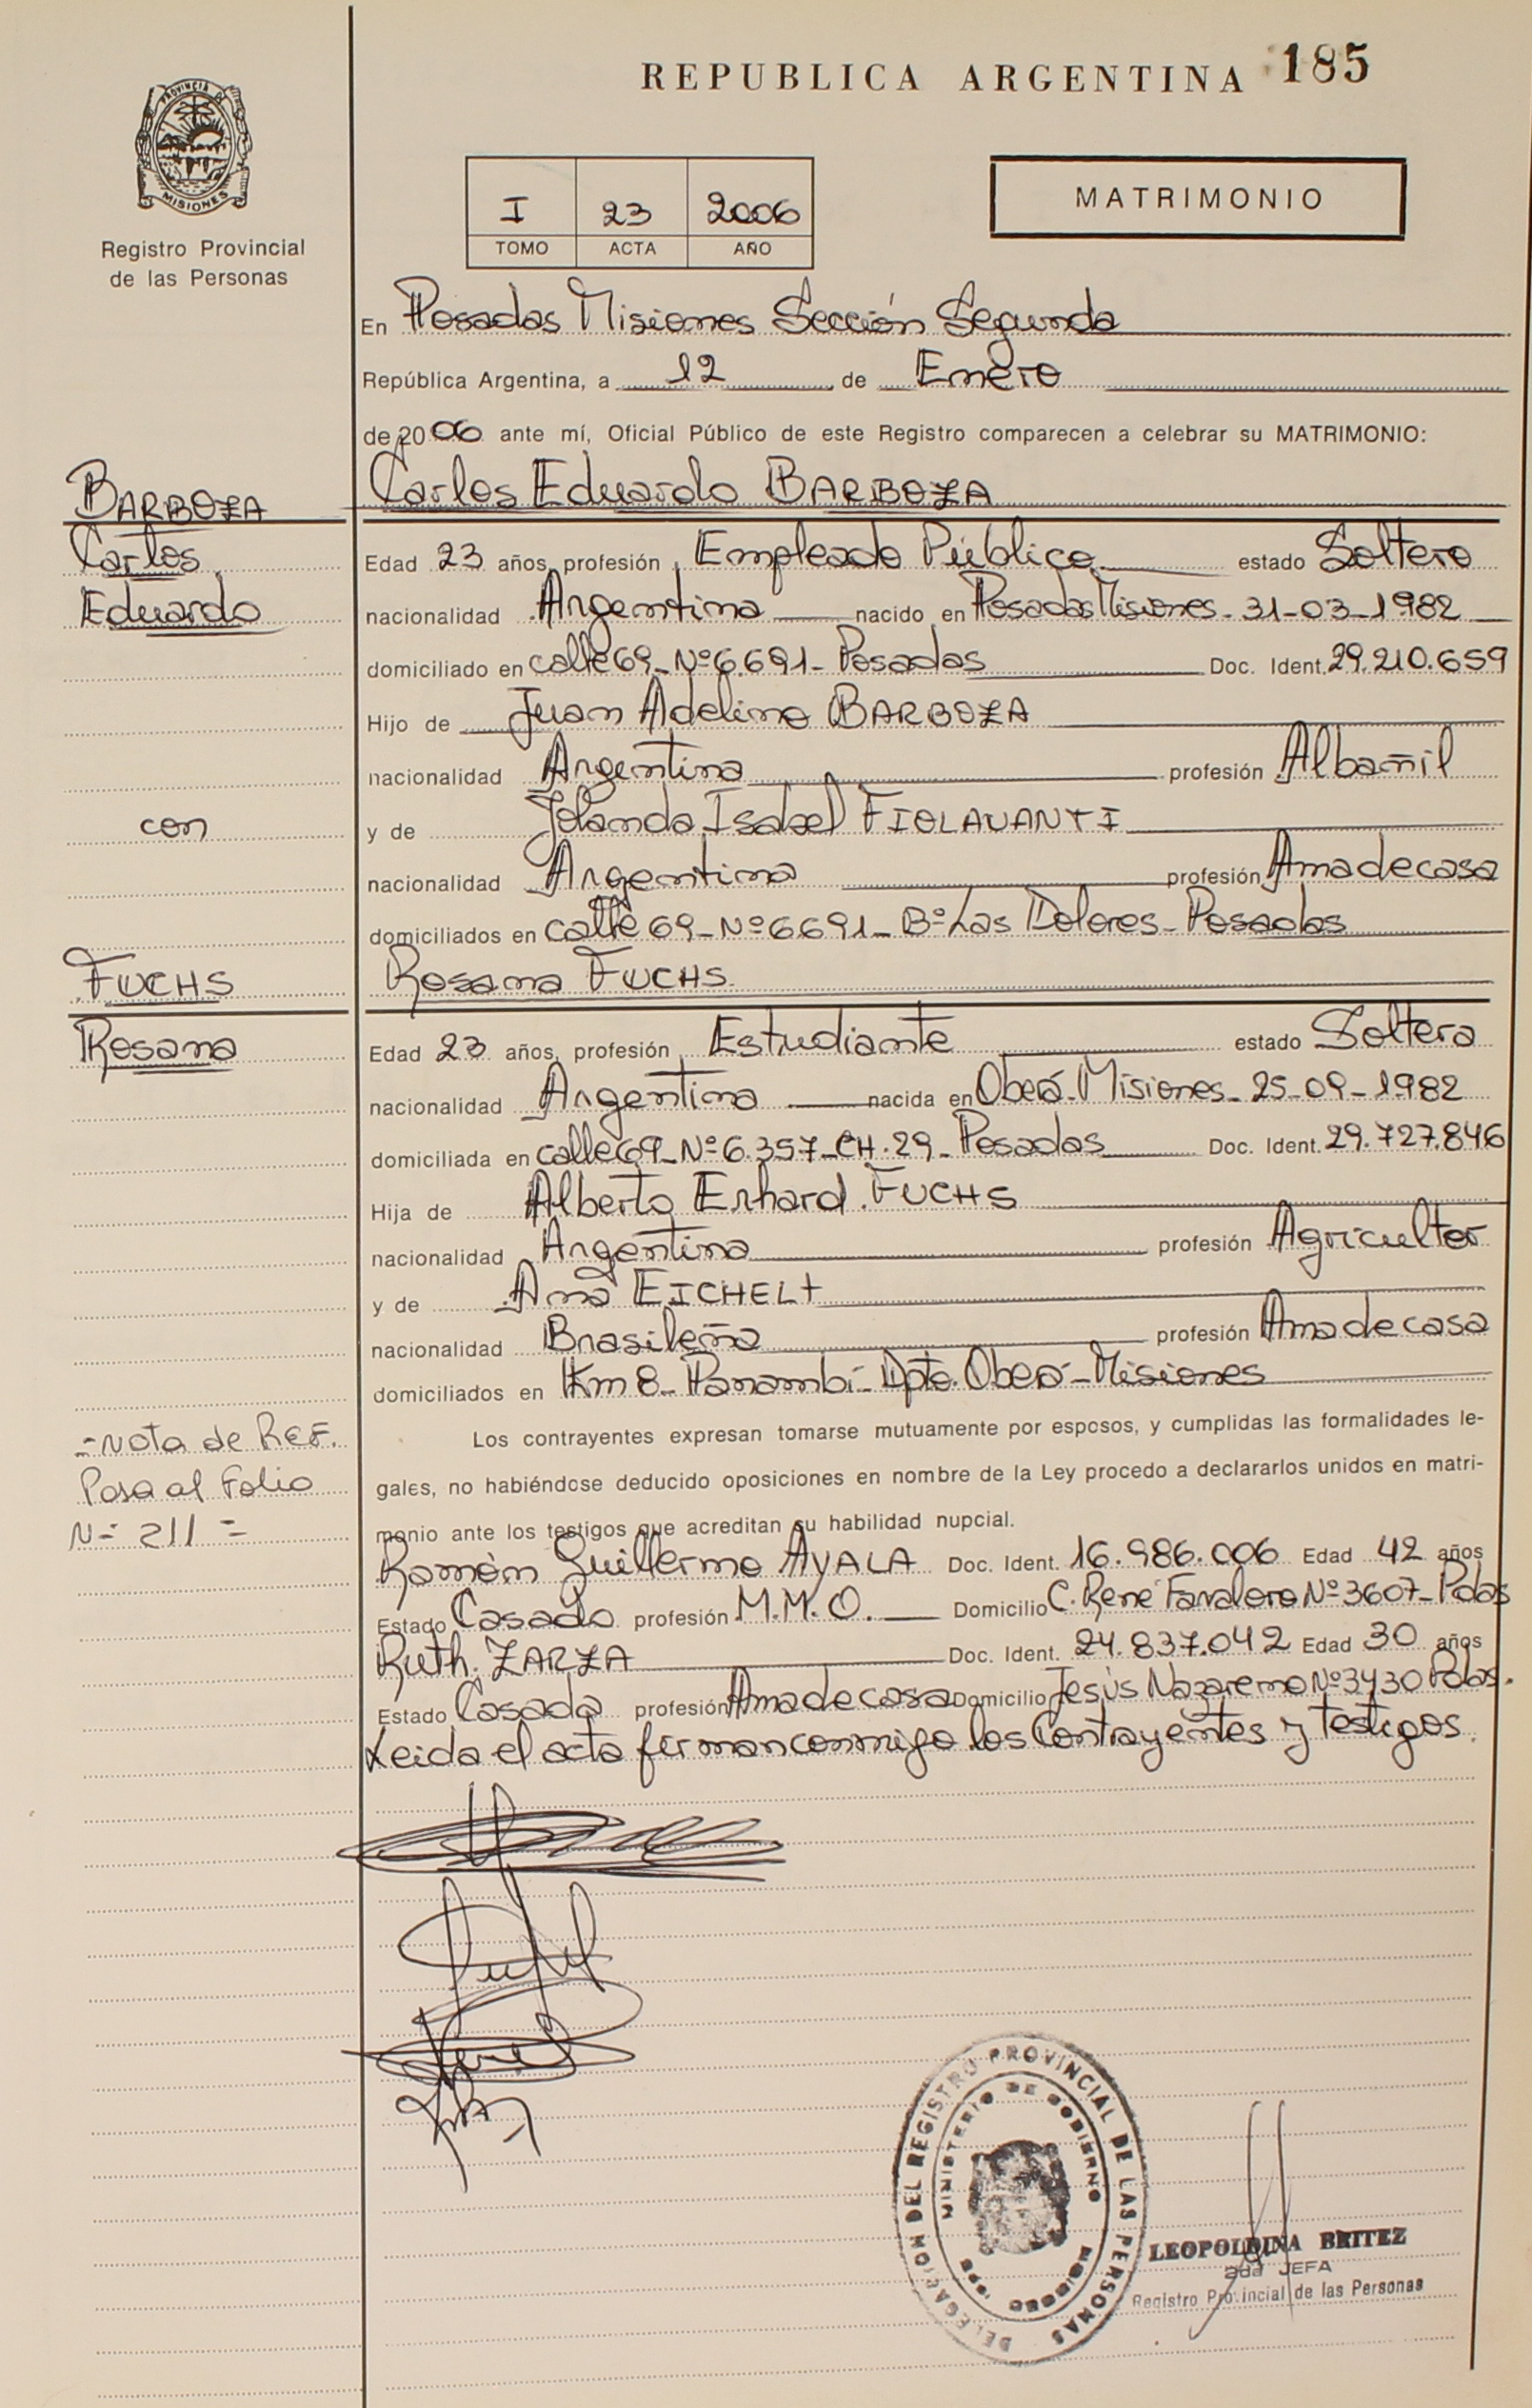 REPUBLICA ARGENTINA 185
PROVINCIA DE
MISIONES
Registro Provincial
de las Personas
I 23 2006
TOMO ACTA AÑO
MATRIMONIO
En Posadas Misiones Sección Segunda
República Argentina, a 12 de Enero
de 2006 ante mí, Oficial Público de este Registro comparecen a celebrar su MATRIMONIO:
BARBOZA
Carlos
Eduardo
con
FUCHS
Rosana
Carlos Eduardo BARBOZA
Edad 23 años, profesión Empleado Público estado Soltero
nacionalidad Argentina nacido en Posadas Misiones - 31-03-1982
domiciliado en calle 69 - Nº 6.691 - Posadas Doc. Ident. 29.210.659
Hijo de Juan Adelino BARBOZA
nacionalidad Argentina profesión Albañil
y de Yolanda Isabel FIOLAVANTI
nacionalidad Argentina profesión Ama de casa
domiciliados en calle 69 - Nº 6691 - Bº Las Dolores - Posadas
Rosana FUCHS
Edad 23 años, profesión Estudiante estado Soltera
nacionalidad Argentina nacida en Oberá - Misiones - 25-09-1982
domiciliada en calle 69 - Nº 6.357 - CH. 29 - Posadas Doc. Ident. 29.727.846
Hija de Alberto Erhard FUCHS
nacionalidad Argentina profesión Agricultor
y de Ana EICHELT
nacionalidad Brasileña profesión Ama de casa
domiciliados en Km 8 - Panambí - Dpto. Oberá - Misiones
- Nota de REF.
Pasa al Folio
Nº 211 =
Los contrayentes expresan tomarse mutuamente por esposos, y cumplidas las formalidades le-
gales, no habiéndose deducido oposiciones en nombre de la Ley procedo a declararlos unidos en matri-
monio ante los testigos que acreditan su habilidad nupcial.
Ramón Guillermo AYALA Doc. Ident. 16.986.006 Edad 42 años
Estado Casado profesión M.M.O. Domicilio C. René Favaloro Nº 3607 - Pdas
Ruth ZARZA Doc. Ident. 24.837.042 Edad 30 años
Estado Casada profesión Ama de casa Domicilio Jesús Nazareno Nº 3430 Pdas.
Leida el acta firman conmigo los Contrayentes y testigos.
DELEGACION DEL REGISTRO PROVINCIAL DE LAS PERSONAS
MINISTERIO DE GOBIERNO
LEOPOLDINA BRITEZ
2da JEFA
Registro Provincial de las Personas